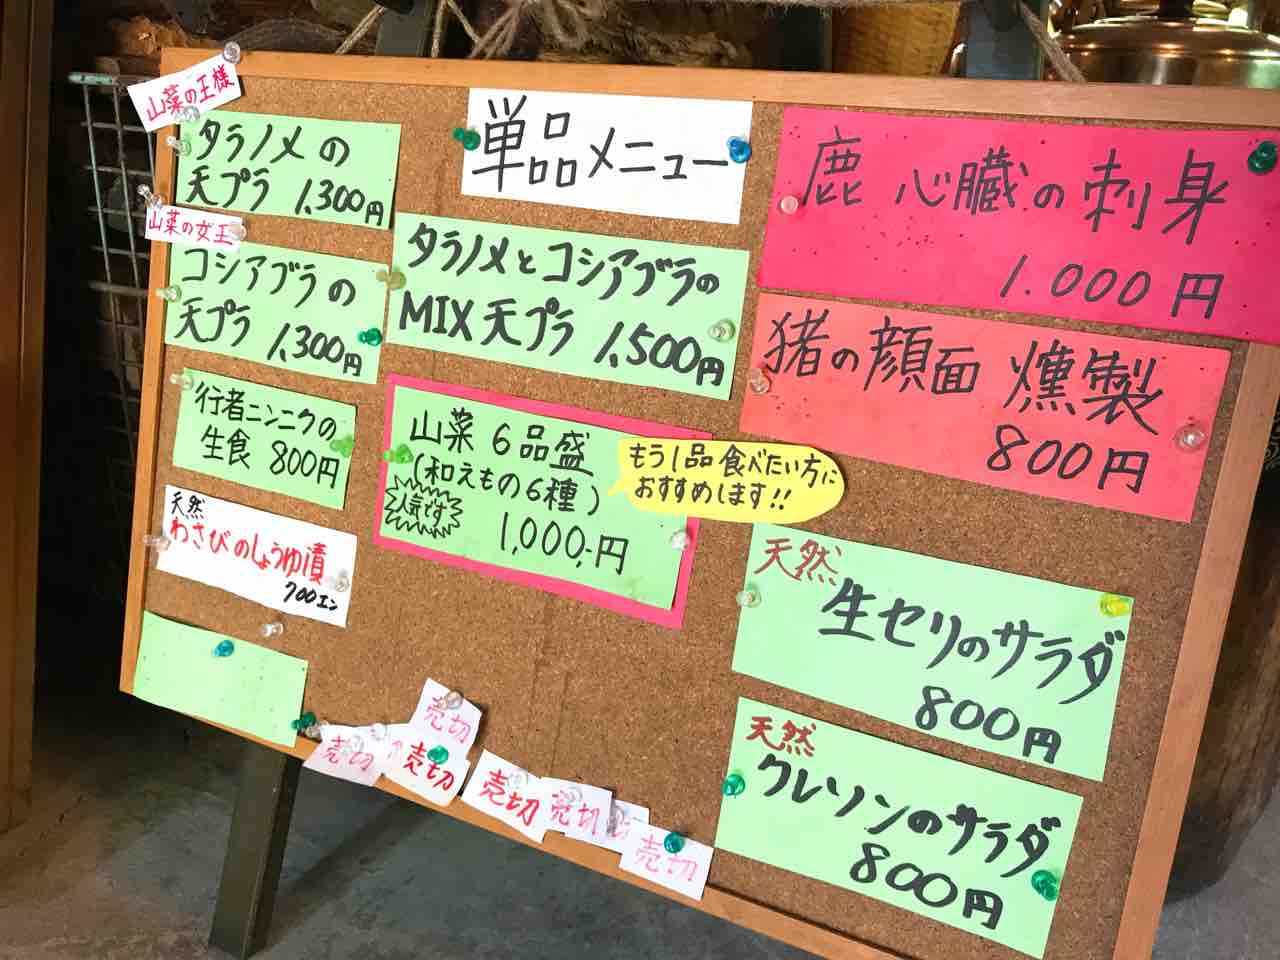 単品メニュー
山菜の王様
タラノメの
天プラ 1,300円
山菜の女王
コシアブラの
天プラ 1,300円
行者ニンニクの
生食 800円
天然
わさびのしょうゆ漬
700エン
タラノメとコシアブラの
MIX天プラ 1,500円
山菜 6品盛
(和えもの6種)
人気です
1,000,-円
もう1品食べたい方に
おすすめします!!
鹿 心臓の刺身
1.000円
猪の顔面 燻製
800円
天然
生セリのサラダ
800円
天然
クレソンのサラダ
800円
売切
売切
売切
売切
売切
売切